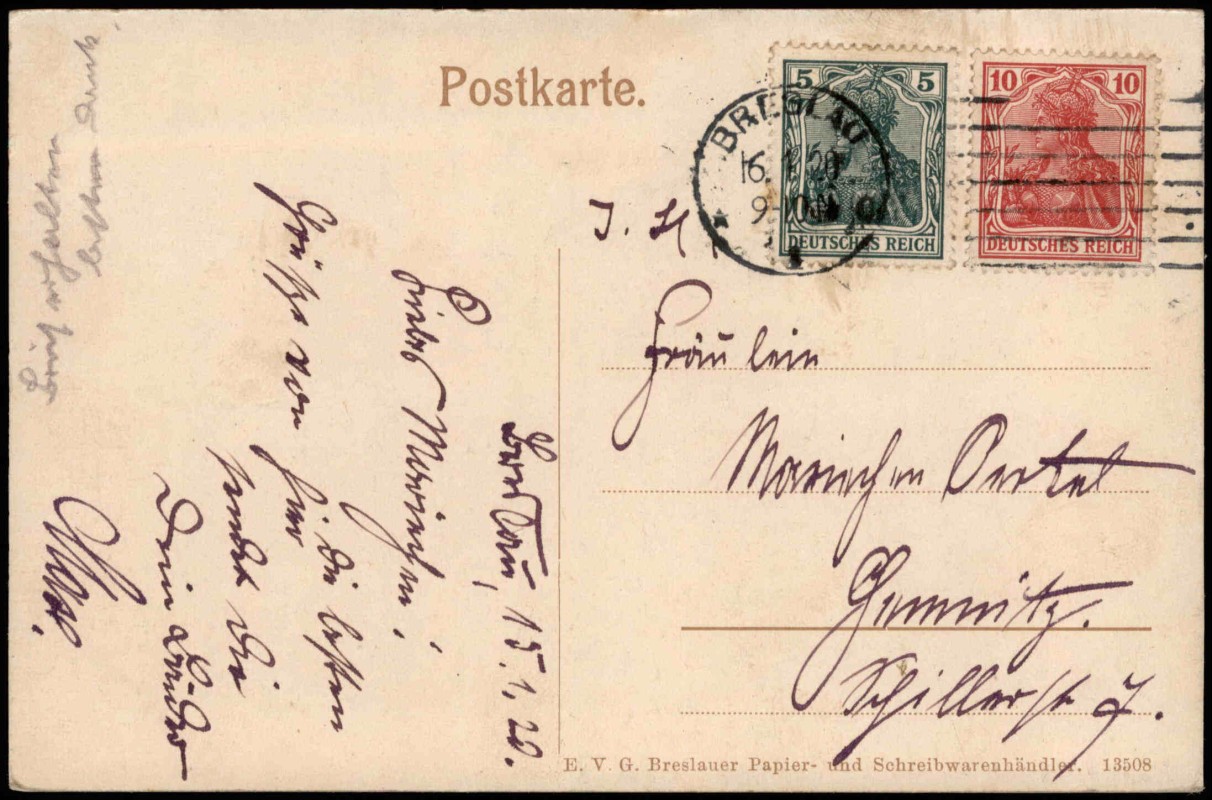 Postkarte.
5 5
DEUTSCHES REICH
10 10
DEUTSCHES REICH
BRESLAU
16.1.20
9-10
Fräulein
Mariechen Oertel
Schillerstr 7.
Breslau, 15.1.20.
Liebes Mariechen!
die besten
Grüße von hier
sendet Dir
Dein Bruder
E. V. G. Breslauer Papier- und Schreibwarenhändler. 13508